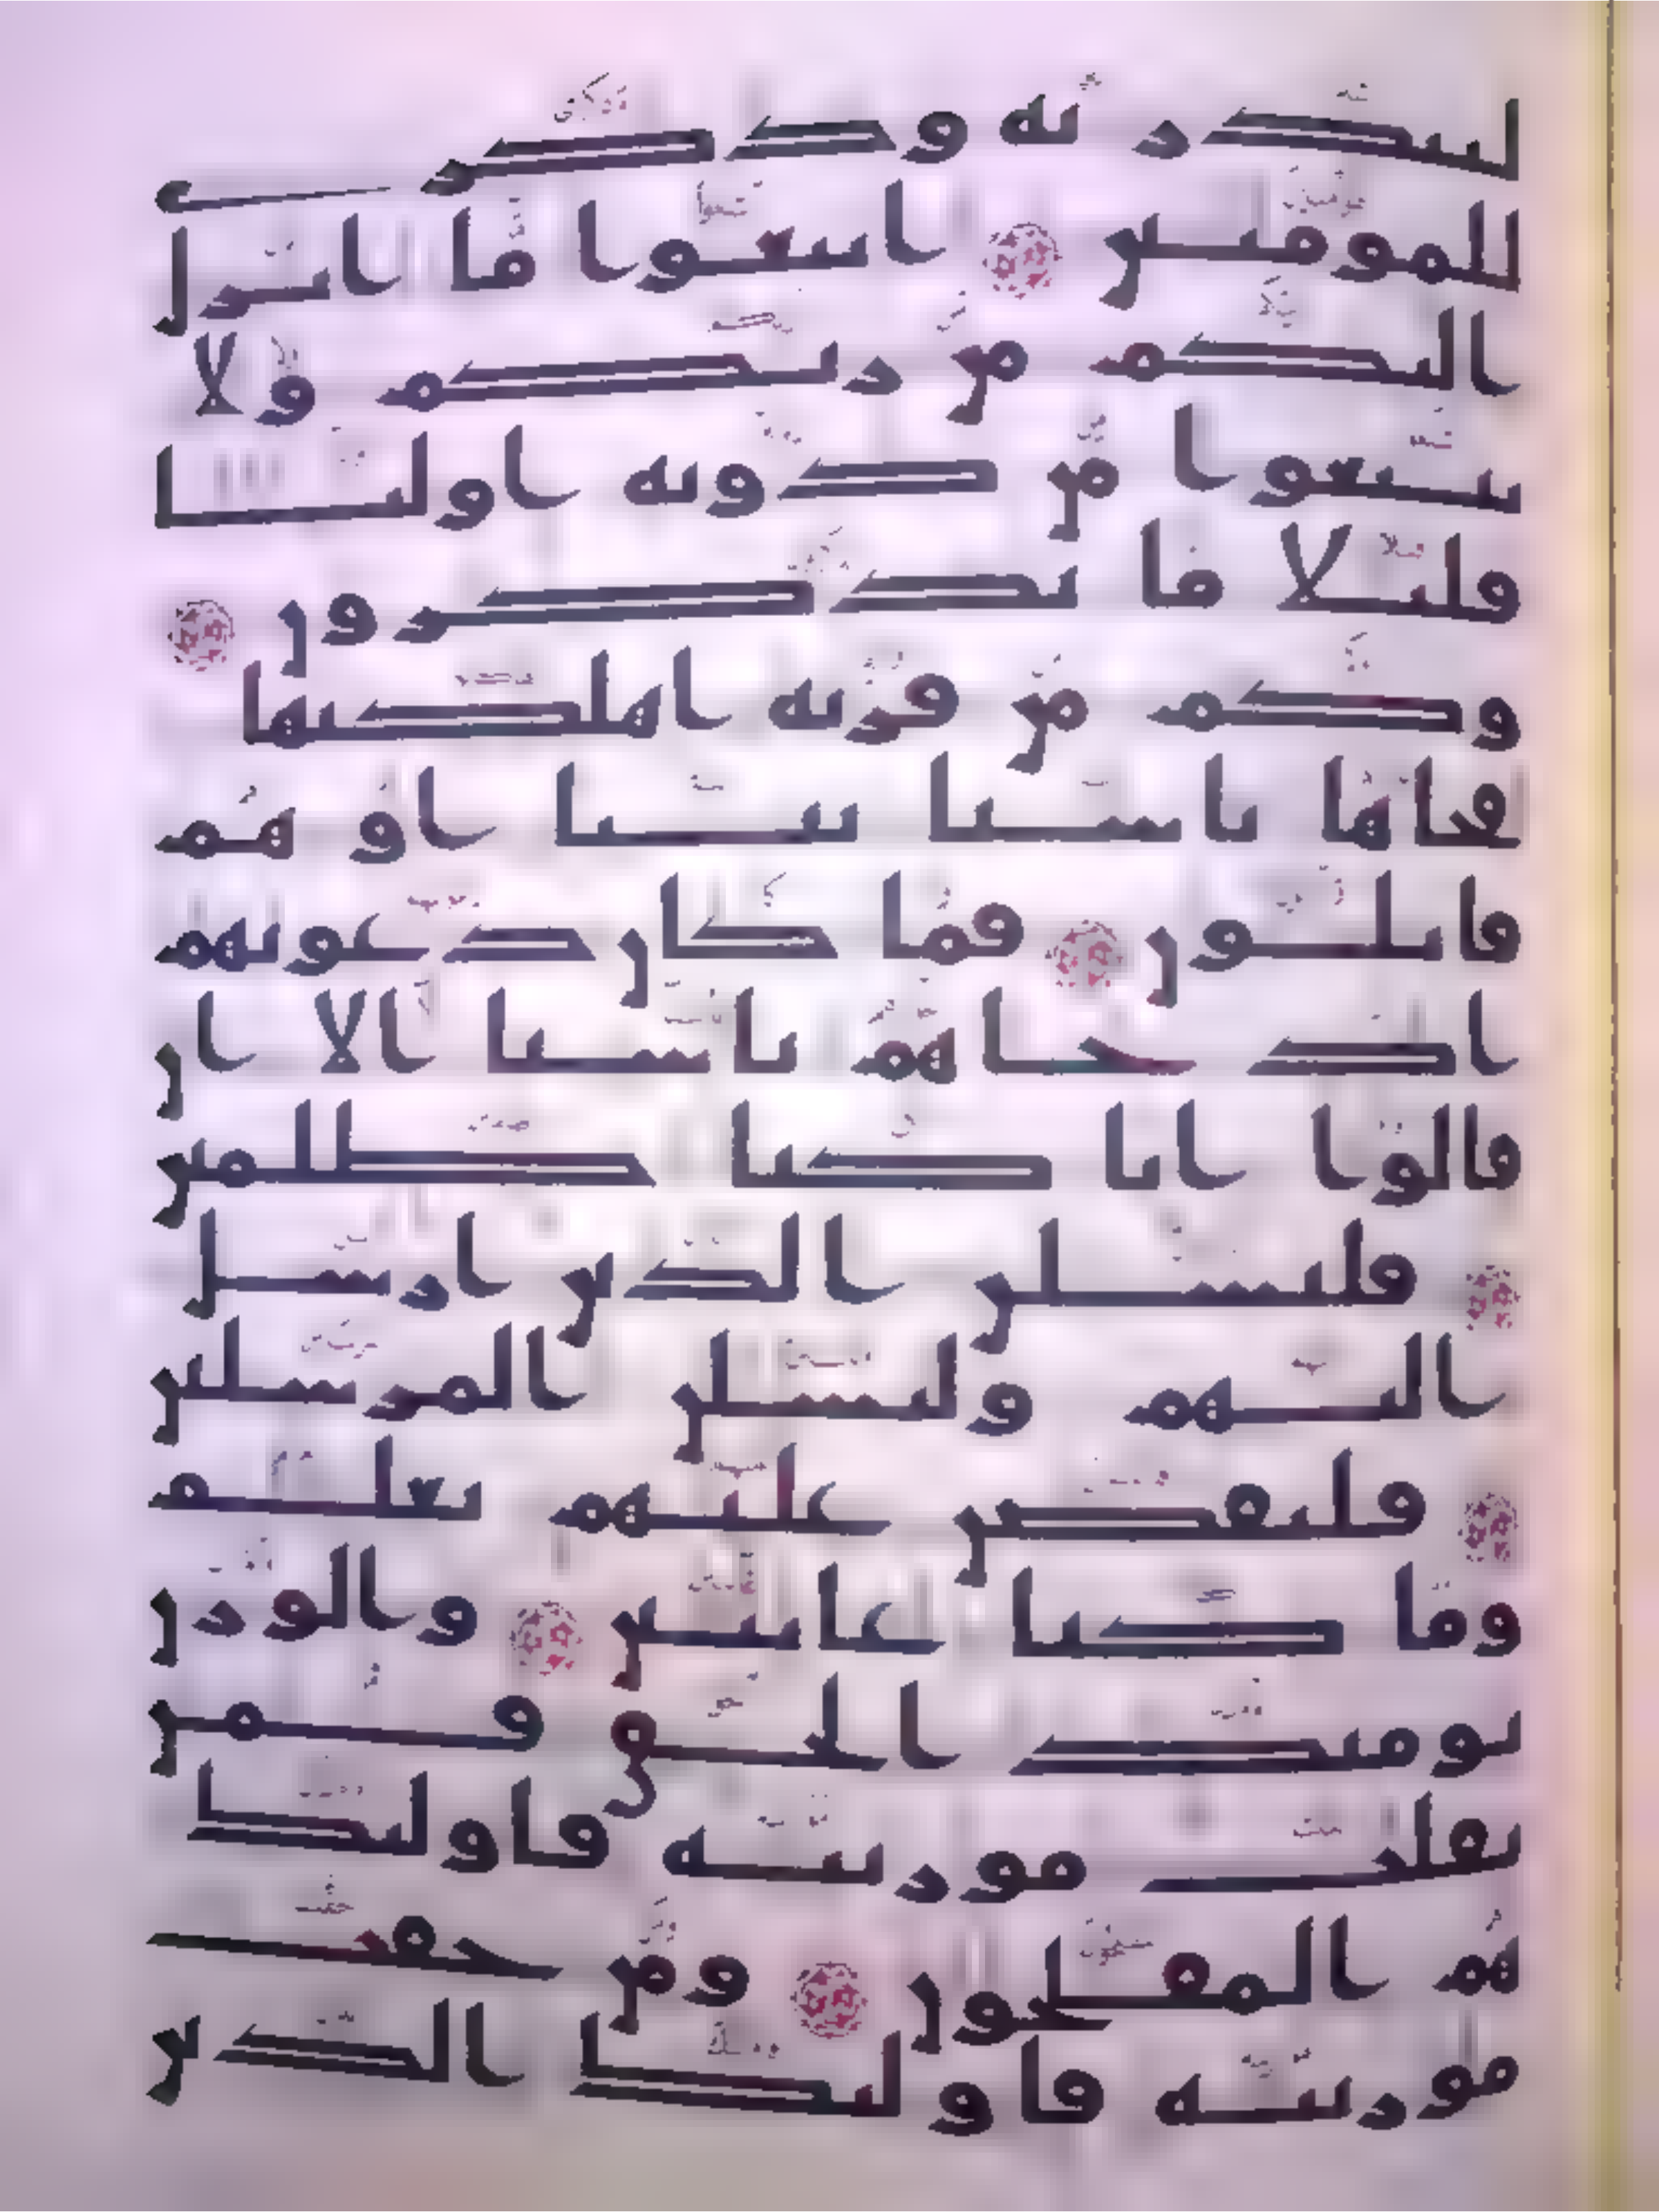 لتنذر به وذكرى
للمومنين اتبعوا ما انزل
اليكم من ربكم ولا
تتبعوا من دونه اوليا
قليلا ما تذكرون
وكم من قرية اهلكنها
فجاها باسنا بيتا او هم
قايلون فما كان دعويهم
اذ جاهم باسنا الا ان
قالوا انا كنا ظلمين
فلنسلن الذين ارسل
اليهم ولنسلن المرسلين
فلنقصن عليهم بعلم
وما كنا غايبين والوزن
يوميذ الحق فمن
ثقلت موزينه فاوليك
هم المفلحون ومن خفت
موزينه فاوليك الذين